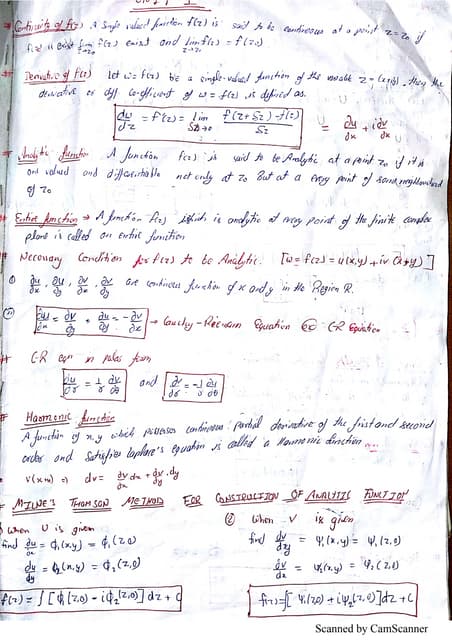 Continuity of f(z) → A single valued function f(z) is said to be continuous at a point z = z₀ if
f(z₀) exist lim z→z₀ f(z) exist and lim z→z₀ f(z) = f(z₀)
Derivative of f(z) Let w = f(z) be a single-valued function of the variable z = (x+iy). then the
derivative or diff co-efficient of w = f(z) is defined as.
dw/dz = f'(z) = lim δz→0 f(z+δz) - f(z) / δz
= ∂u/∂x + i∂v/∂x
Analytic function A function f(z) is said to be Analytic at a point z₀ if it is
one valued and differentiable not only at z₀ But at a every point of some neighbourhood
of z₀
Entire function → A function f(z) which is analytic at every point of the finite complex
plane is called an entire function
Necessary Condition for f(z) to be Analytic. [w = f(z) = u(x,y) + iv(x+y)]
① ∂u/∂x, ∂u/∂y, ∂v/∂x, ∂v/∂y are continous function of x and y in the Region R.
② ∂u/∂x = ∂v/∂y , ∂u/∂y = -∂v/∂x → Cauchy-Riemann Equation C-R Equation
C-R eqn in polar form
∂u/∂r = 1/r ∂v/∂θ and ∂v/∂r = -1/r ∂u/∂θ
Harmonic function
A function of x,y which possesses continuous partial derivative of the first and second
order and satisfies Laplace's equation is called a Harmonic function
dv = ∂v/∂x dx + ∂v/∂y . dy
MILNE'S THOMSON METHOD FOR CONSTRUCTION OF ANALYTIC FUNCTION
① when U is given
find ∂u/∂x = ϕ₁(x,y) = ϕ₁(z,0)
∂u/∂y = ϕ₂(x,y) = ϕ₂(z,0)
f(z) = ∫[ϕ₁(z,0) - iϕ₂(z,0)]dz + C
② When V is given
find ∂v/∂y = ψ₁(x,y) = ψ₁(z,0)
∂v/∂x = ψ₂(x,y) = ψ₂(z,0)
f(z) = ∫[ψ₁(z,0) + iψ₂(z,0)]dz + C
Scanned by CamScanner